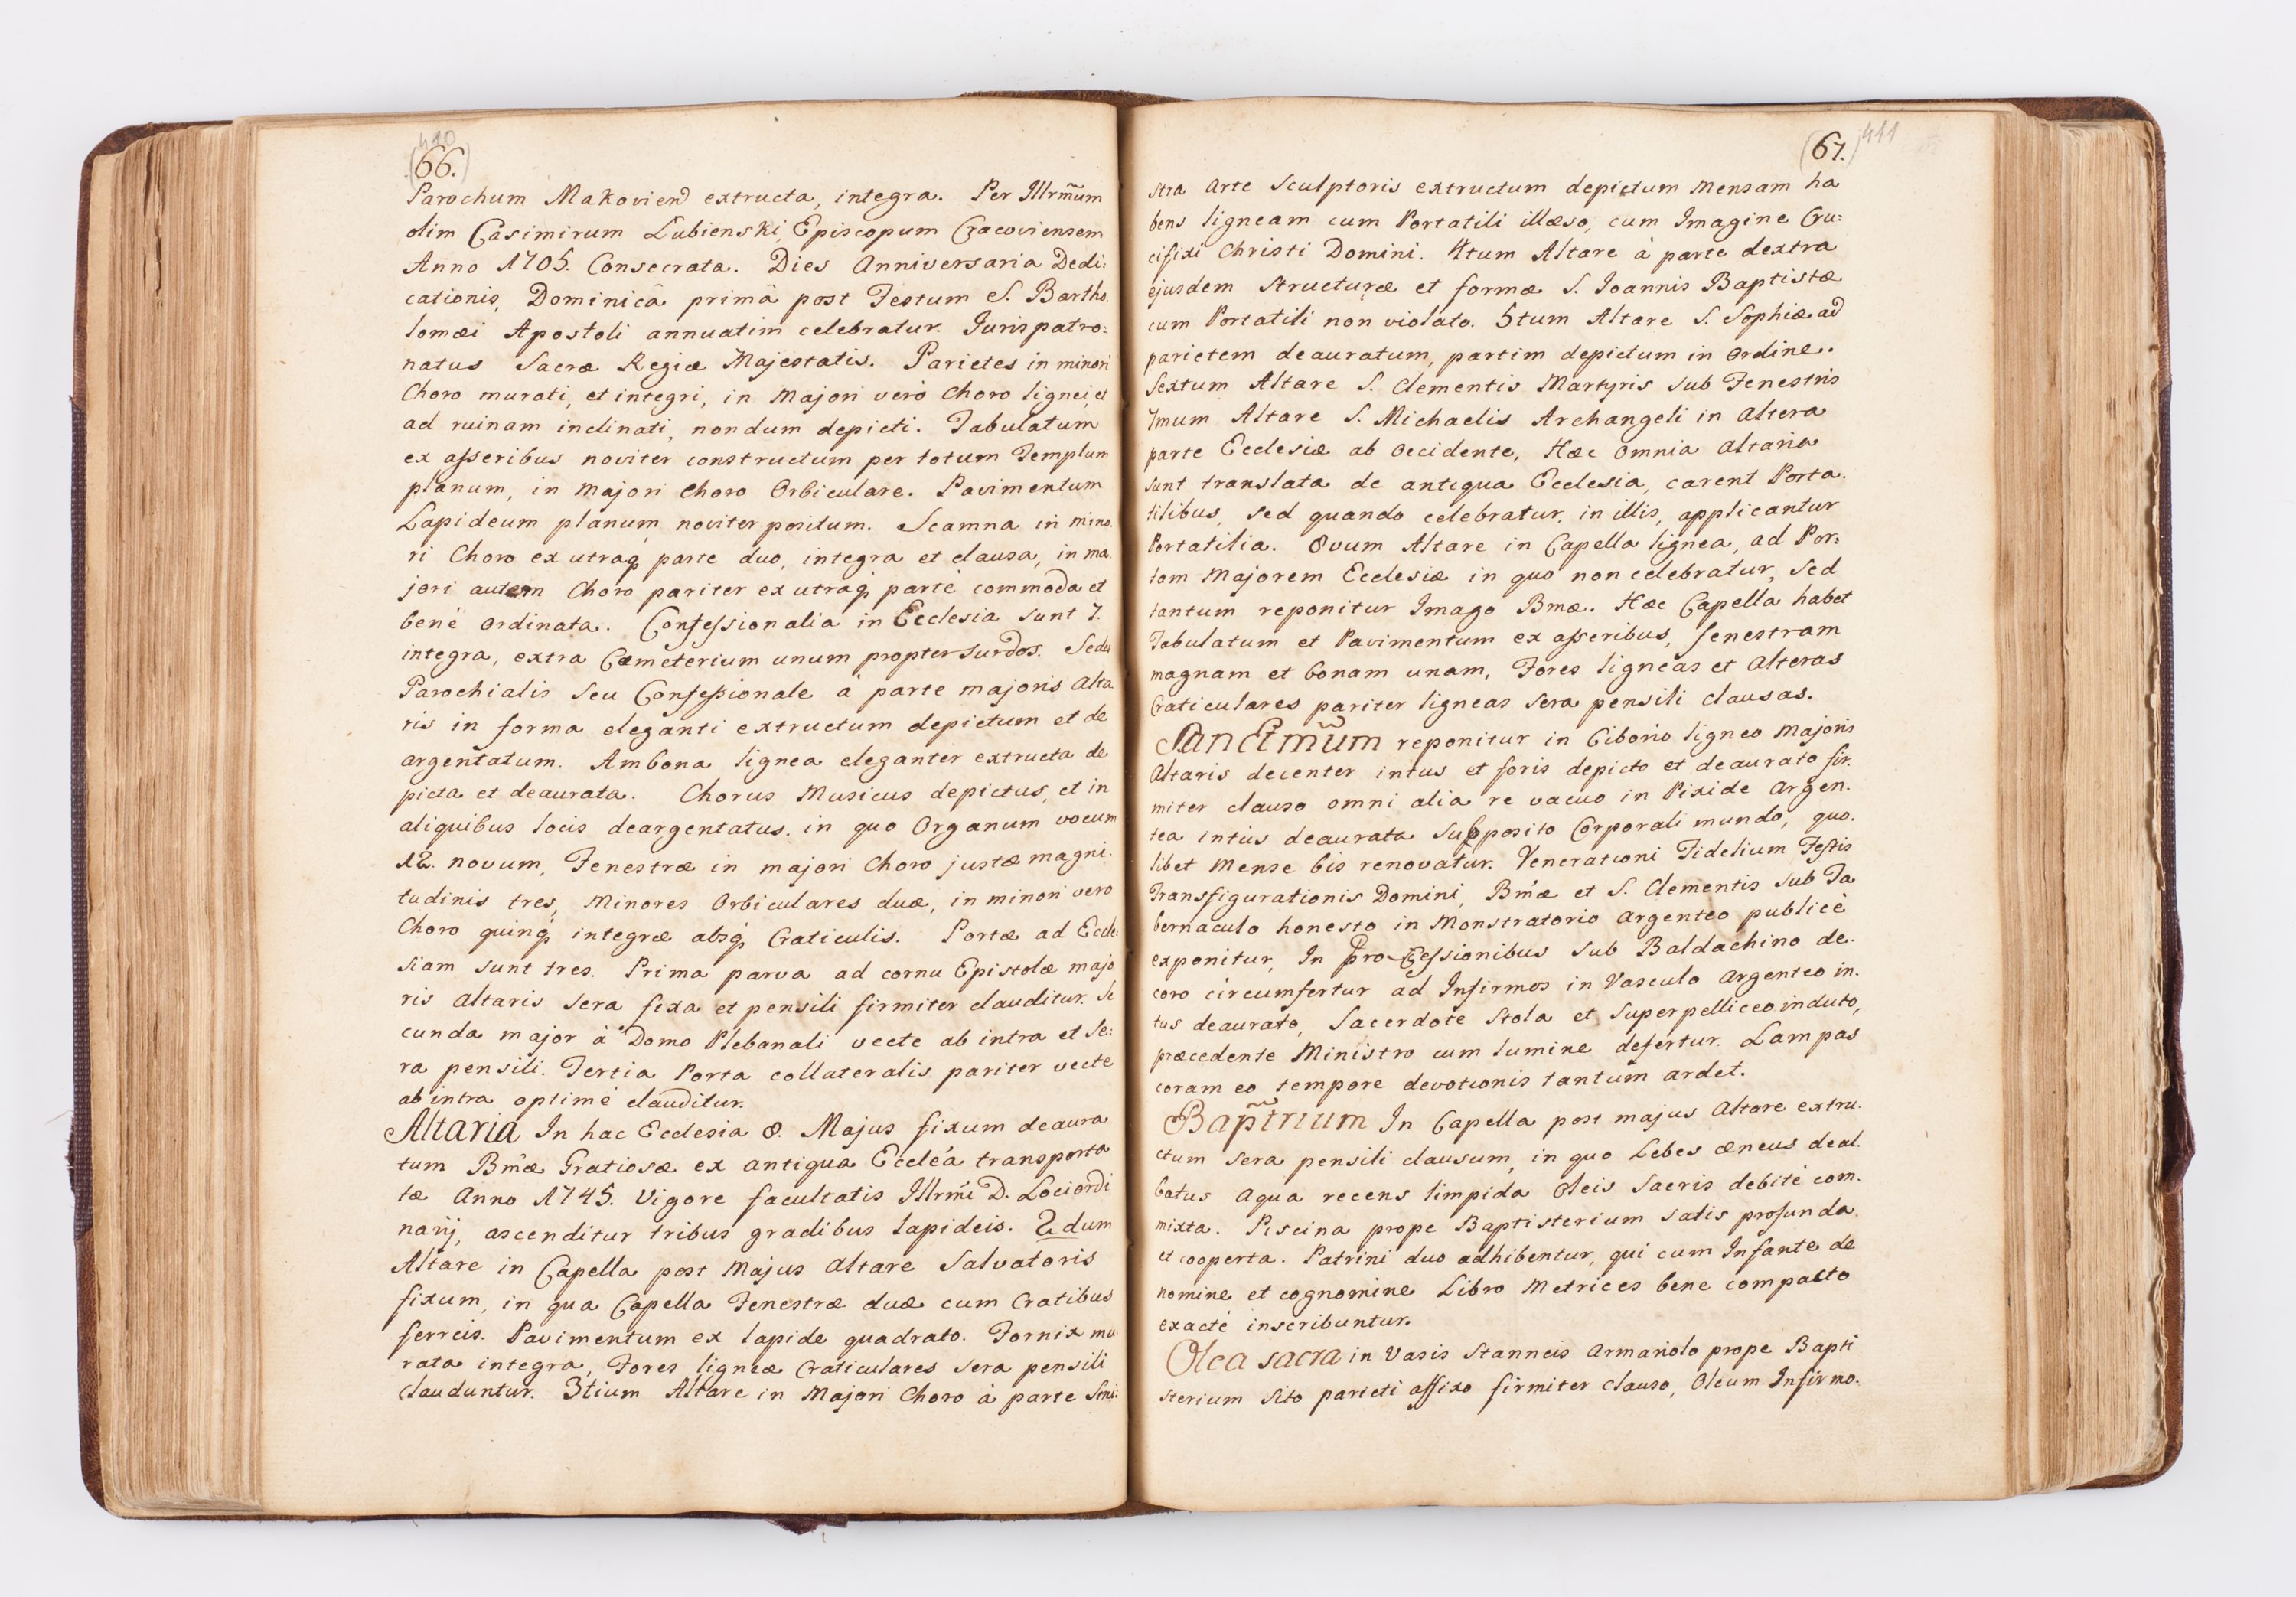 410
(66.)
Parochum Makoviend extructa, integra. Per Illrm̃um
olim Casimirum Lubienski Episcopum Cracoviensem
Anno 1705. Consecrata. Dies Anniversaria Dedi:
cationis, Dominicâ primâ post Festum S. Bartho.
lomæi Apostoli annuatim celebratur. Jurispatro:
natus Sacræ Regiæ Majestatis. Parietes in minori
Choro murati, et integri, in Majori verò Choro lignei, et
ad ruinam inclinati, nondum depicti. Tabulatum
ex asseribus noviter constructum per totum Templum
planum, in Majori Choro Orbiculare. Pavimentum
Lapideum planum noviter positum. Scamna in mino.
ri Choro ex utraq; parte duo, integra et clausa, in ma
jori autem Choro pariter ex utraq; parte commoda et
benè ordinata. Confessionalia in Ecclesia sunt 7.
integra, extra Cæmeterium unum propter surdos. Sedes
Parochialis seu Confessionale à parte majoris Alta
ris in forma eleganti extructum depictum et de
argentatum. Ambona lignea eleganter extructa de
picta et deaurata. Chorus Musicus depictus, et in
aliquibus locis deargentatus. in quo Organum vocum
12. novum, Fenestræ in majori Choro justæ magni.
tudinis tres, Minores Orbiculares duæ, in minori vero
Choro quinq; integræ absq; Craticulis. Portæ ad Eccle:
siam sunt tres. Prima parva ad cornu Epistolæ majo.
ris Altaris sera fixa et pensili firmiter clauditur. Se
cunda major à Domo Plebanali vecte ab intra et Se:
ra pensili. Tertia Porta collateralis pariter vecte
ab intra optimè clauditur.
Altaria In hac Ecclesia 8. Majus fixum deaura
tum Bmæ Gratiosæ ex antiqua Eccleâ transporta
tæ Anno 1745. Vigore facultatis Illrmi D. Lociordi
narij, ascenditur tribus gradibus lapideis. 2dum
Altare in Capella post Majus Altare Salvatoris
fixum, in qua Capella Fenestræ duæ cum Cratibus
ferreis. Pavimentum ex lapide quadrato. Fornix mu
rata integra, Fores ligneæ Craticulares sera pensili
clauduntur. 3tium Altare in Majori Choro à parte Sini
(67.) 411
stra Arte Sculptoris extructum depictum Mensam ha
bens ligneam cum Portatili illæso, cum Imagine Cru:
cifixi Christi Domini. 4tum Altare à parte dextra
ejusdem Structuræ et formæ S. Joannis Baptistæ
cum Portatili non violato. 5tum Altare S. Sophiæ ad
parietem deauratum, partim depictum in ordine.
Sextum Altare S. Clementis Martyris sub Fenestris
7mum Altare S. Michaelis Archangeli in altera
parte Ecclesiæ ab Occidente, Hæc Omnia altaria
sunt translata de antiqua Ecclesia, carent Porta.
tilibus, sed quando celebratur, in illis, applicantur
Portatilia. 8vum Altare in Capella lignea, ad Por:
tam Majorem Ecclesiæ in quo non celebratur, sed
tantum reponitur Imago Bmæ. Hæc Capella habet
Tabulatum et Pavimentum ex asseribus, fenestram
magnam et bonam unam, Fores ligneas et Alteras
Craticulares pariter ligneas sera pensili clausas.
Sanctm̃um reponitur in Ciborio ligneo Majoris
Altaris decenter intus et foris depicto et deaurato fir.
miter clauso omni alia re vacuo in Pixide argen.
tea intùs deaurata supposito Corporali mundo, quo.
libet Mense bis renovatur. Venerationi Fidelium Festis
Transfigurationis Domini, Bmæ et S. Clementis sub Ta
bernaculo honesto in Monstratorio argenteo publicè
exponitur, In Processionibus sub Baldachino de.
coro circumfertur ad Infirmos in Vasculo argenteo in.
tus deaurato, Sacerdote Stola et Superpelliceo induto,
præcedente Ministro cum lumine defertur. Lampas
coram eo tempore devotionis tantùm ardet.
Bapt̃rium In Capella post majus Altare extru.
ctum sera pensili clausum, in quo Lebes æneus deal.
batus aqua recens limpida Oleis Sacris debitè com.
mixta. Piscina prope Baptisterium satis profunda
et cooperta. Patrini duo adhibentur, qui cum Infante de
nomine et cognomine Libro Metrices bene compacto
exactè inscribuntur.
Olea sacra in Vasis Stanneis Armariolo prope Bapti
sterium sito parieti affixo firmiter clauso, Oleum Infirmo.